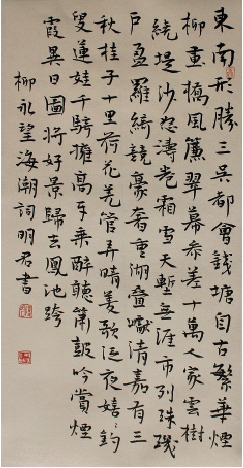 東南形勝三吳都會錢塘自古繁華煙
柳畫橋風簾翠幕參差十萬人家雲樹
繞堤沙怒濤卷霜雪天塹無涯市列珠璣
戶盈羅綺競豪奢重湖疊巘清嘉有三
秋桂子十里荷花羌管弄晴菱歌泛夜嬉〻釣
叟蓮娃千騎擁高牙乘醉聽簫鼓吟賞煙
霞異日圖將好景歸去鳳池跨
柳永望海潮詞明君書